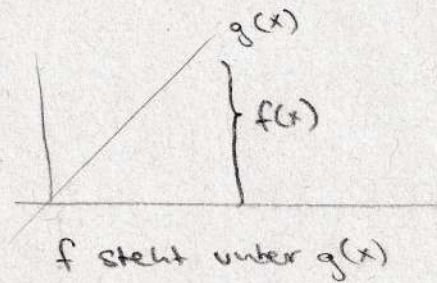 g(x)
f(x)
f steht unter g(x)